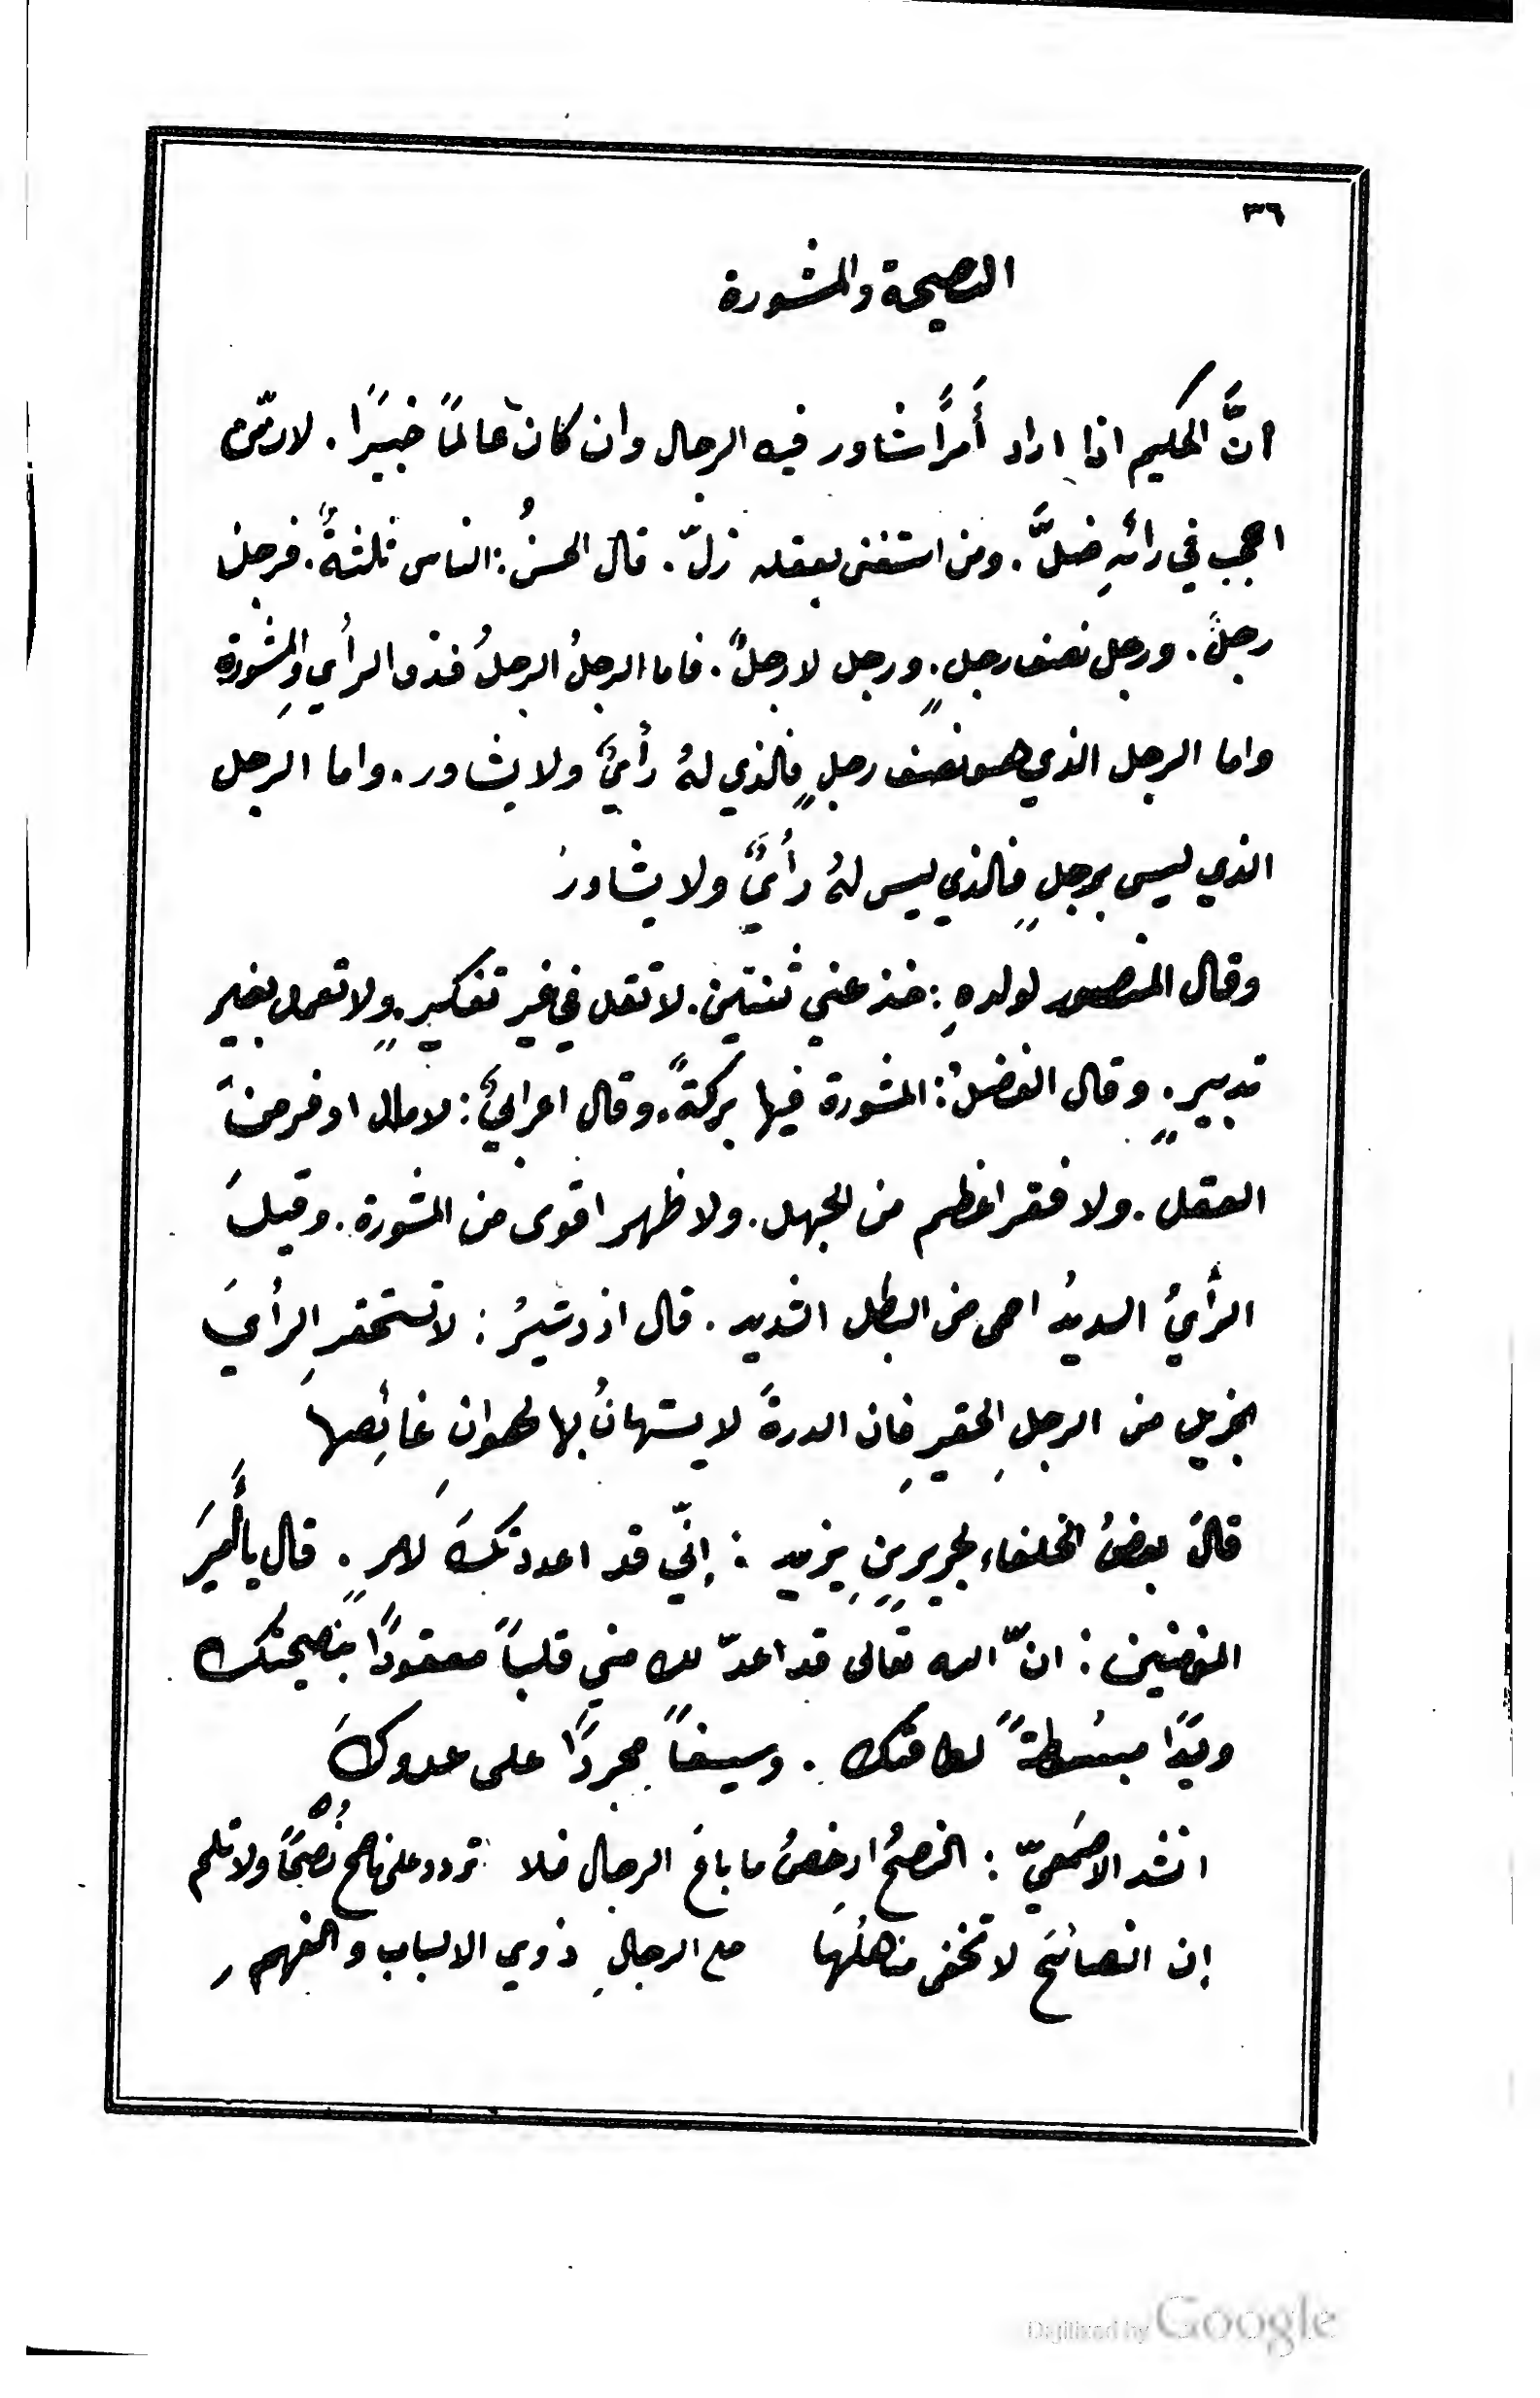 ٣٦
النصيحة والمشورة
انَّ الحكيم اذا اراد أَمرًا شاور فيه الرجال وان كان عالمًا خبيرًا . لان من
اعجب في رائهِ ضلَّ . ومن استغنى بعقله زلّ . قال الحسنُ : الناس ثلثةٌ . فرجلٌ
رجلٌ . ورجل نصف رجلٍ . ورجل لا رجلٌ . فاما الرجلُ الرجلُ فذو الرأي والمشورةِ
واما الرجل الذي هو نصف رجلٍ فالذي لهُ رأيٌ ولا يشاور . واما الرجل
الذي ليس برجلٍ فالذي ليس لهُ رأيٌ ولا يشاورُ
وقال المنصور لولدهِ : خذ عني ثنتين . لا تقل في غير تفكيرٍ . ولا تعمل بغير
تدبيرٍ . وقال الفضلُ : المشورة فيها بركةً . وقال اعرابيٌّ : لا مال اوفر منَ
العقل . ولا فقر اعظم من الجهل . ولا ظهر اقوى من المشورة . وقيلَ
الرأيُ السديدُ احمى من البطل الشديد . قال ازدشيرُ : لا تستحقرِ الرأيَ
الجزيل من الرجلِ الحقيرِ فان الدرةَ لا يستهانُ بها لهوانِ غائصها
قالَ بعضُ الخلفاء لجريرِ بنِ يزيد : إنّي قد اعددتكَ لامرٍ . قال يا أَميرَ
المؤمنين : انّ الله تعالى قد اعدّ لك مني قلبًا معقودًا بنصيحتك
ويدًا مبسُوطةً لطاعتك . وسيفًا مجردًا على عدوكَ
انشد الاصمَعيّ : النصحُ ارخصُ ما باعَ الرجال فلا تردد على ناصح نُصحًا ولا تلم
إن النصائحَ لا تخفى مناهلُها مع الرجالِ ذوي الالباب والفهمِ
Digitized by Google